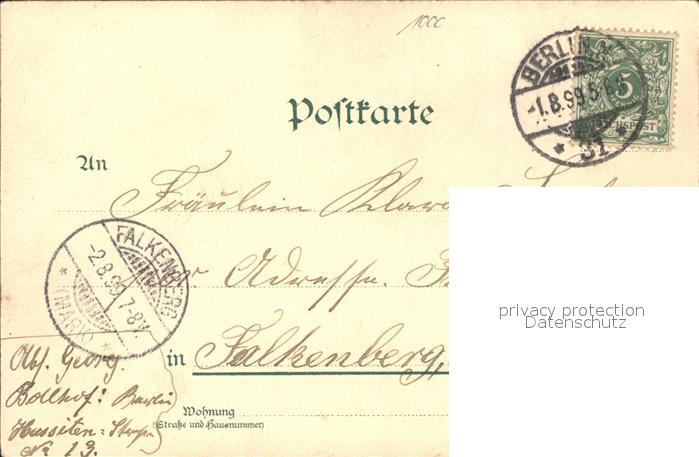 1000
BERLIN N
-1.8.99.5-6N.
* 31 *
5
PFENNIG
REICHSPOST
Postkarte
An Fräulein Klara
per Adresse.
FALKENBERG
-2.8.99.7-8V.
* (MARK) *
in Falkenberg,
Abs. Georg.
Bollhof: Berlin
Hussiten=Straße
No 13.
Wohnung
(Straße und Hausnummer)
privacy protection
Datenschutz